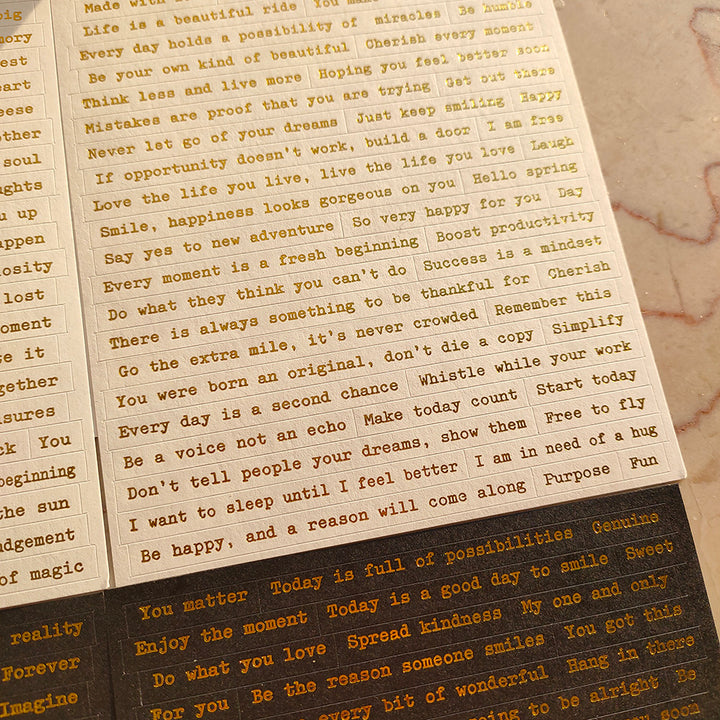 big
mory
est
eart
eese
other
soul
ughts
u up
appen
iosity
lost
oment
e it
gether
asures
ck You
beginning
the sun
udgement
of magic
Made with
Life is a beautiful ride You
Every day holds a possibility of miracles Be humble
Be your own kind of beautiful Cherish every moment
Think less and live more Hoping you feel better soon
Mistakes are proof that you are trying Get out there
Never let go of your dreams Just keep smiling Happy
If opportunity doesn't work, build a door I am free
Love the life you live, live the life you love Laugh
Smile, happiness looks gorgeous on you Hello spring
Say yes to new adventure So very happy for you Day
Every moment is a fresh beginning Boost productivity
Do what they think you can't do Success is a mindset
There is always something to be thankful for Cherish
Go the extra mile, it's never crowded Remember this
You were born an original, don't die a copy Simplify
Every day is a second chance Whistle while your work
Be a voice not an echo Make today count Start today
Don't tell people your dreams, show them Free to fly
I want to sleep until I feel better I am in need of a hug
Be happy, and a reason will come along Purpose Fun
reality
Forever
Imagine
You matter Today is full of possibilities Genuine
Enjoy the moment Today is a good day to smile Sweet
Do what you love Spread kindness My one and only
For you Be the reason someone smiles You got this
every bit of wonderful Hang in there
going to be alright Be
soon